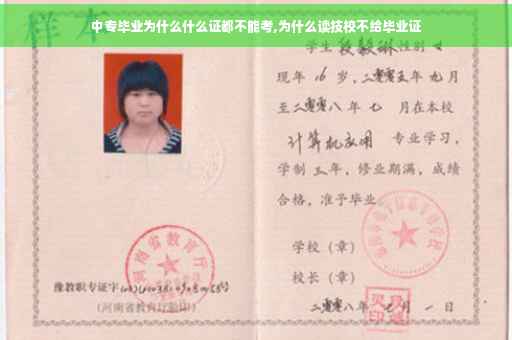 中专毕业为什么什么证都不能考,为什么读技校不给毕业证
样本
学生段毅琳性别女
现年16岁,二零零五年九月
至二零零八年七月在本校
计算机应用专业学习,
学制三年,修业期满,成绩
合格,准予毕业。
学校(章)
校长(章)
二零零八年七月一日
河南省教育厅
豫教职专证字
(河南省教育厅验印)